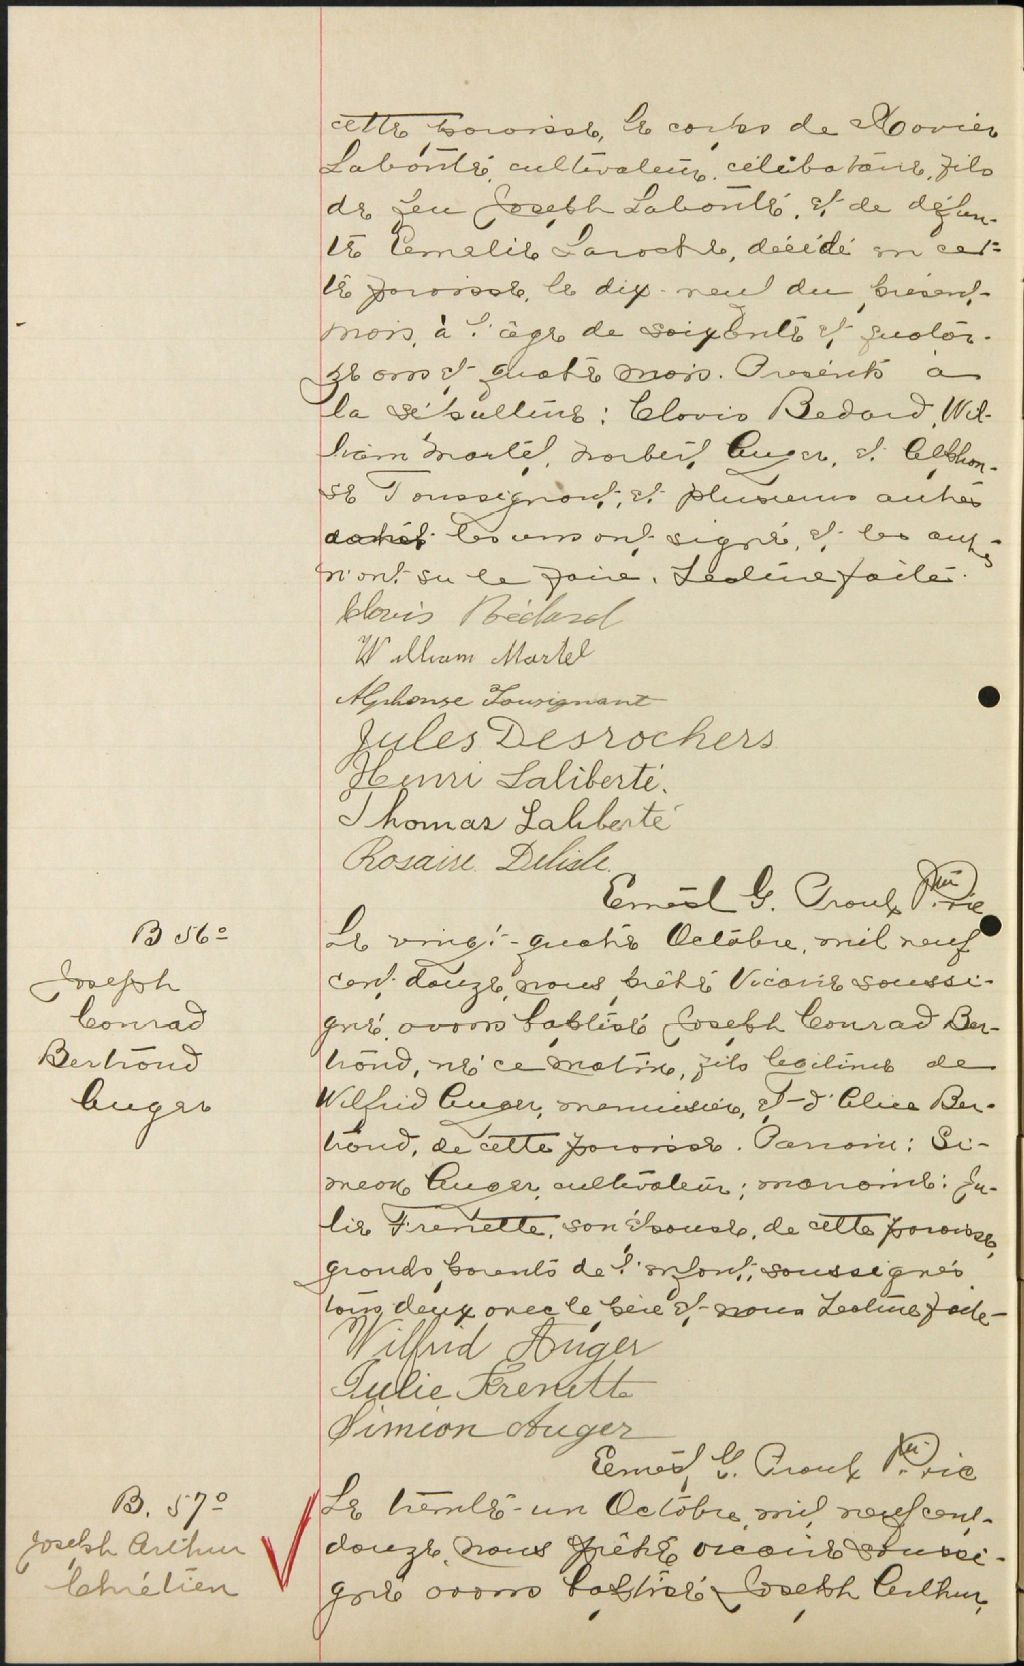 cette paroisse, le corps de Xavier
Labonté, cultivateur, célibataire, fils
de feu Joseph Labonté, et de défun-
te Emelie Laroche, décédé en cet-
te paroisse, le dix-neuf du présent
mois, à l'âge de soixante et quator-
ze ans et quatre mois. Présents à
la sépulture : Clovis Bedard, Wil-
liam Martel, Norbert Auger, et Alphon-
se Toussignant, et plusieurs autres
dont les uns ont signé, et les autres
n'ont su le faire. Lecture faite.
Clovis Bédard
William Martel
Alphonse Tousignant
Jules Desrochers
Henri Laliberté.
Thomas Laliberté
Rosaire Delisle.
Ernest G. Proulx Ptre vic
B 56º
Joseph
Conrad
Bertrand
Auger
Le vingt-quatre Octobre, mil neuf
cent douze, nous prêtre Vicaire soussi-
gné, avons baptisé Joseph Conrad Ber-
trand, né ce matin, fils légitime de
Wilfrid Auger, menuisier, et d'Alice Ber-
trand, de cette paroisse. Parrain : Si-
meon Auger, cultivateur ; marraine : Ju-
lie Frenette, son épouse, de cette paroisse,
grands parents de l'enfant, soussignés
tous deux avec le père et nous Lecture faite
Wilfrid Auger
Julie Frenette
Simeon Auger
Ernest G. Proulx Ptre vic
B. 57º
Joseph Arthur
Chrétien
Le trente-un Octobre, mil neuf cent
douze, nous prêtre vicaire soussi-
gné avons baptisé Joseph Arthur,